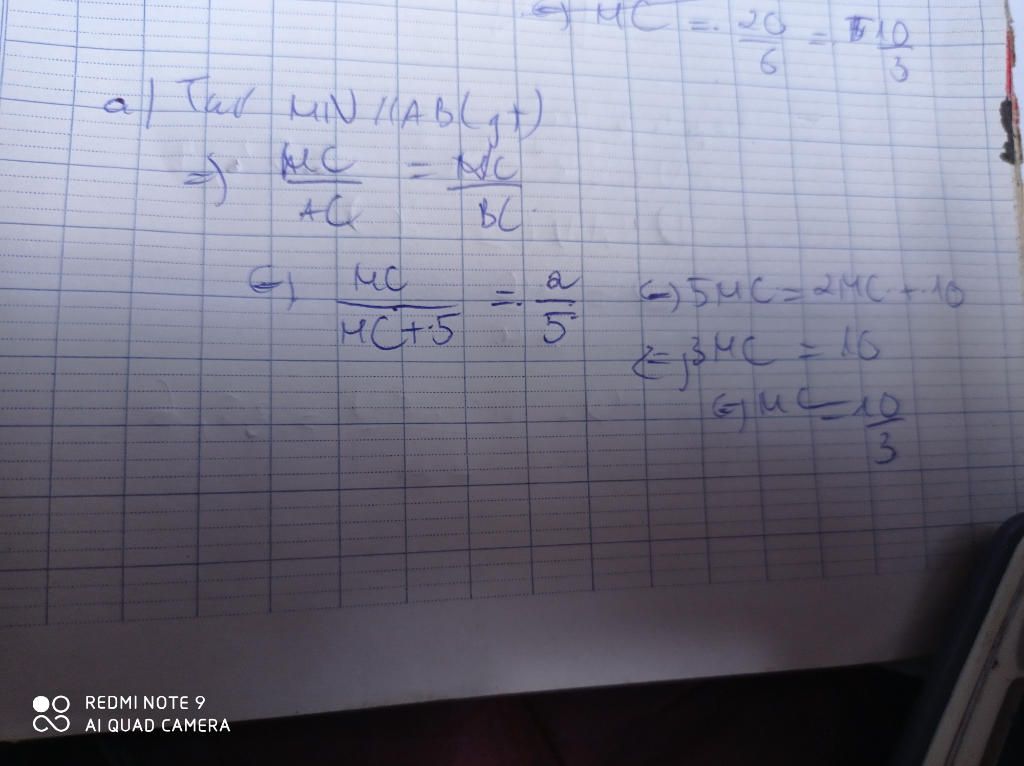 ⇔) MC = 20/6 = 10/3
a) Ta có MN // AB (gt)
=) MC/AC = NC/BC
⇔) MC/(MC+5) = 2/5 ⇔) 5MC = 2MC + 10
⇔) 3MC = 10
⇔) MC = 10/3
REDMI NOTE 9
AI QUAD CAMERA